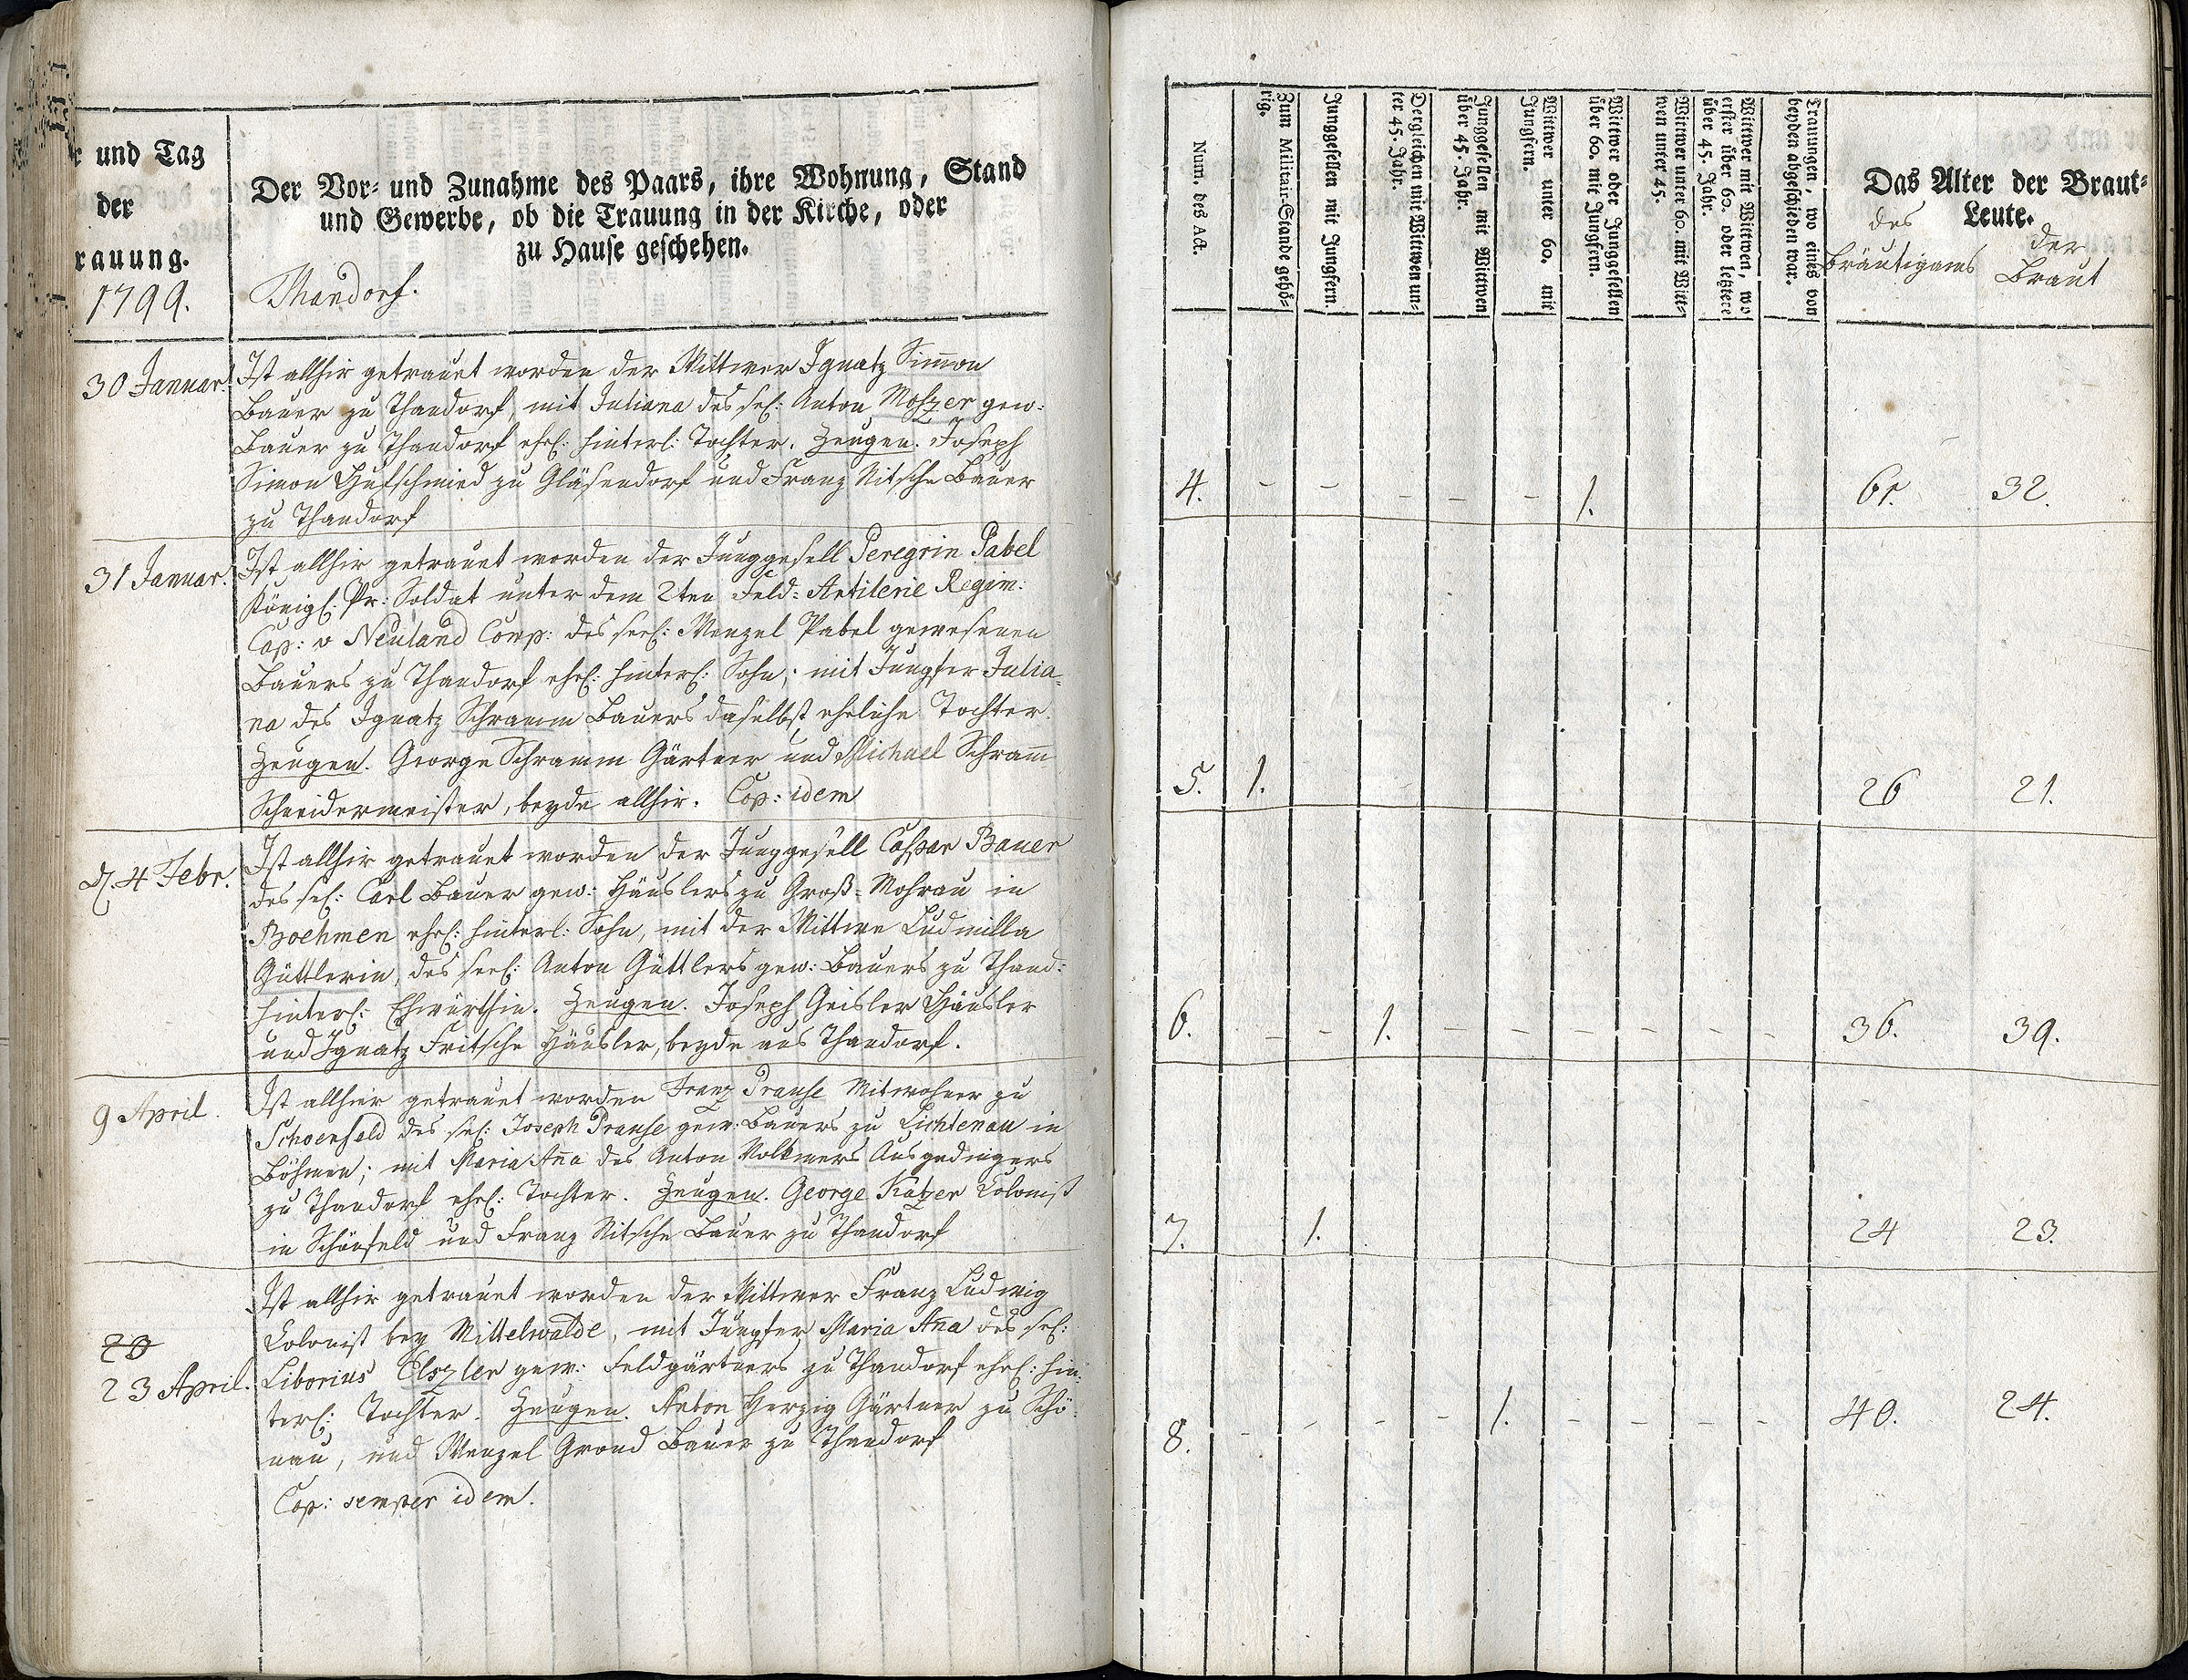 r und Tag
der
rauung.
1799.
Der Vor- und Zunahme des Paars, ihre Wohnung, Stand
und Gewerbe, ob die Trauung in der Kirche, oder
zu Hause geschehen.
Thandorf.
30 Januar.
Ist allhir getrauet worden der Wittwer Ignatz Sim̄on
Bauer zu Thandorf, mit Juliana des sel: Anton Moszer gew:
Bauer zu Thandorf ehel: hinterl: Tochter. Zeugen. Joseph
Simon Hufschmied zu Gläsendorf und Franz Nitsche Bauer
zu Thandorf
31 Januar.
Ist allhir getrauet worden der Junggesell Peregrin Pabel
Königl: Pr: Soldat unter dem 2ten Feld- Artilerie Regim:
Cap: v Neuland Comp: des seel: Wenzel Pabel gewesenen
Bauers zu Thandorf ehel: hinterl: Sohn; mit Jungfer Julia-
na des Ignatz Schramm Bauers daselbst eheliche Tochter.
Zeugen. George Schramm Gärtner und Michael Schram̄
Schneidermeister, beyde allhir. Cop: idem
d. 4 Febr.
Ist allhir getrauet worden der Junggesell Caspar Bauer
des sel: Carl Bauer gew: Häuslers zu Groß-Mohrau in
Boehmen ehel: hinterl: Sohn, mit der Wittwe Ludmilla
Güttlerin, des seel: Anton Güttlers gew: Bauers zu Thand:
hinterl: Ehwürthin. Zeugen. Joseph Geisler Häusler
und Ignatz Fritsche Häusler, beyde aus Thandorf.
9 April.
Ist allhier getrauet worden Franz Prause Mitwohner zu
Schoenfeld des sel: Joseph Prause gew: Bauers zu Lichtenau in
Böhmen; mit Maria An̄a des Anton Volkmers Ausgedingers
zu Thandorf ehel: Tochter. Zeugen. George Katzer Colonist
in Schönfeld und Franz Nitsche Bauer zu Thandorf
23 April.
Ist allhir getrauet worden der Wittwer Franz Ludwig
Colonist bey Mittelwalde, mit Jungfer Maria An̄a des sel:
Liborius Elszler gew: Feldgärtners zu Thandorf ehel: hin-
terl: Tochter. Zeugen. Anton Herzig Gärtner zu Schö-
nau, und Wenzel Grond Bauer zu Thandorf
Cop: semper idem.
Num. des Act.
Zum Militair-Stande gehö-
rig.
Junggesellen mit Jungfern.
Dergleichen mit Wittwen un-
ter 45. Jahr.
Junggesellen mit Wittwen
über 45. Jahr.
Wittwer unter 60. mit
Jungfern.
Wittwer oder Junggesellen
über 60. mit Jungfern.
Wittwer unter 60. mit Witt-
wen unter 45.
Wittwer mit Wittwen, wo
erster über 60. oder letztere
über 45. Jahr.
Trauungen, wo eines von
beyden abgeschieden war.
Das Alter der Braut-
Leute.
des
Bräutigams
der
Braut
4. - - - - - 1. 61. 32.
5. 1. 26 21.
6. - - 1. - - - - - - 36. 39.
7. 1. 24 23.
8. - - - - 1. - - - - 40. 24.